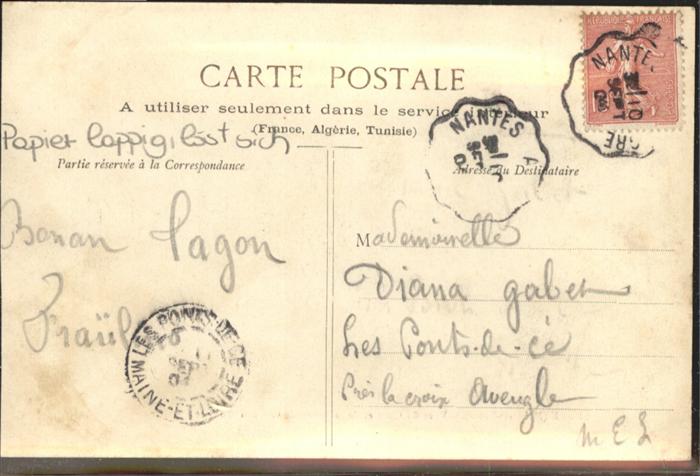 RÉPUBLIQUE FRANÇAISE
CARTE POSTALE
A utiliser seulement dans le service intérieur
(France, Algérie, Tunisie)
Papier lappig, löst sich
Partie réservée à la Correspondance
Adresse du Destinataire
NANTES A
NANTES
Bonan Pagon
Mademoiselle
Diana Gabet
Les Ponts-de-cé
Près la croix Aveugle
M E L
LES PONTS-DE-CÉ
MAINE-ET-LOIRE